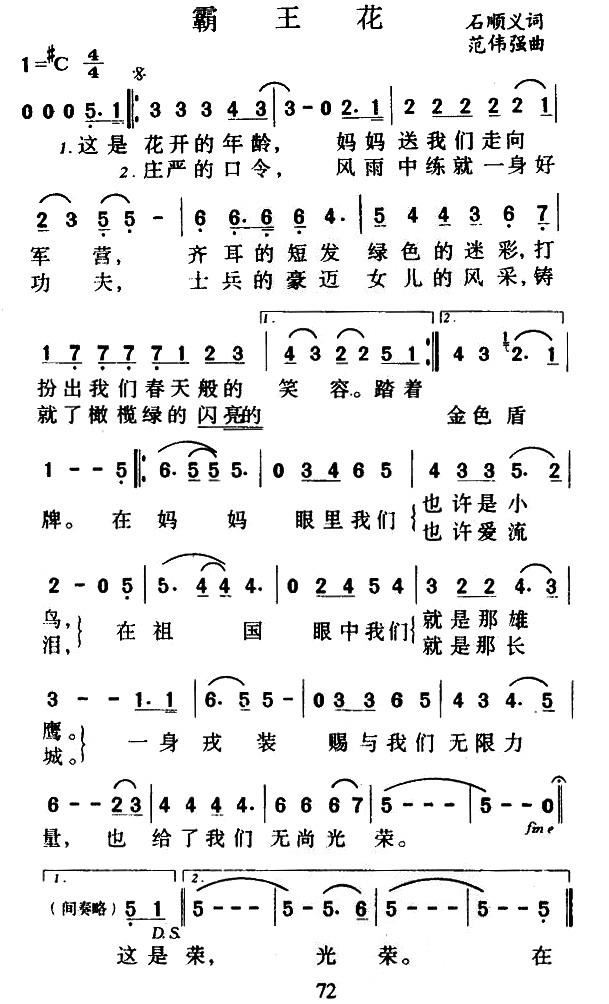 霸王花
石顺义词
范伟强曲
1=#C 4/4
0 0 0 5.1 3 3 3 4 3 3-0 2.1 2 2 2 2 2 2 1
1.这是 花开的年龄, 妈妈 送我们走向
2.庄严的口令, 风雨 中练就一身好
2 3 5 5 - 6 6.6 6 6 4. 5 4 4 3 6 7
军 营, 齐耳的短发 绿色的迷彩,打
功 夫, 士兵的豪迈 女儿的风采,铸
1. 2.
1 7 7 7 7 1 2 3 4 3 2 2 5 1 4 3 1 2. 1
扮出我们春天般的 笑 容。踏着
就了橄榄绿的闪亮的 金色盾
1 - - 5 6. 5 5 5. 0 3 4 6 5 4 3 3 5. 2
牌。 在 妈 妈 眼里我们 也许是小
也许爱流
2 - 0 5 5. 4 4 4. 0 2 4 5 4 3 2 2 4. 3
鸟, 在 祖 国 眼中我们 就是那雄
泪, 就是那长
3 - - 1.1 6. 5 5 5 - 0 3 3 6 5 4 3 4. 5
鹰。 一身 戎 装 赐与我们 无限力
城。
6 - - 2 3 4 4 4 4. 6 6 6 6 7 5 - - - 5 - - 0
fine
量, 也 给了我们 无尚光 荣。
1. 2.
(间奏略) 5 1 5 - - - 5 - 5. 6 5 - - - 5 - - 5
D.S.
这是 荣, 光 荣。 在
72